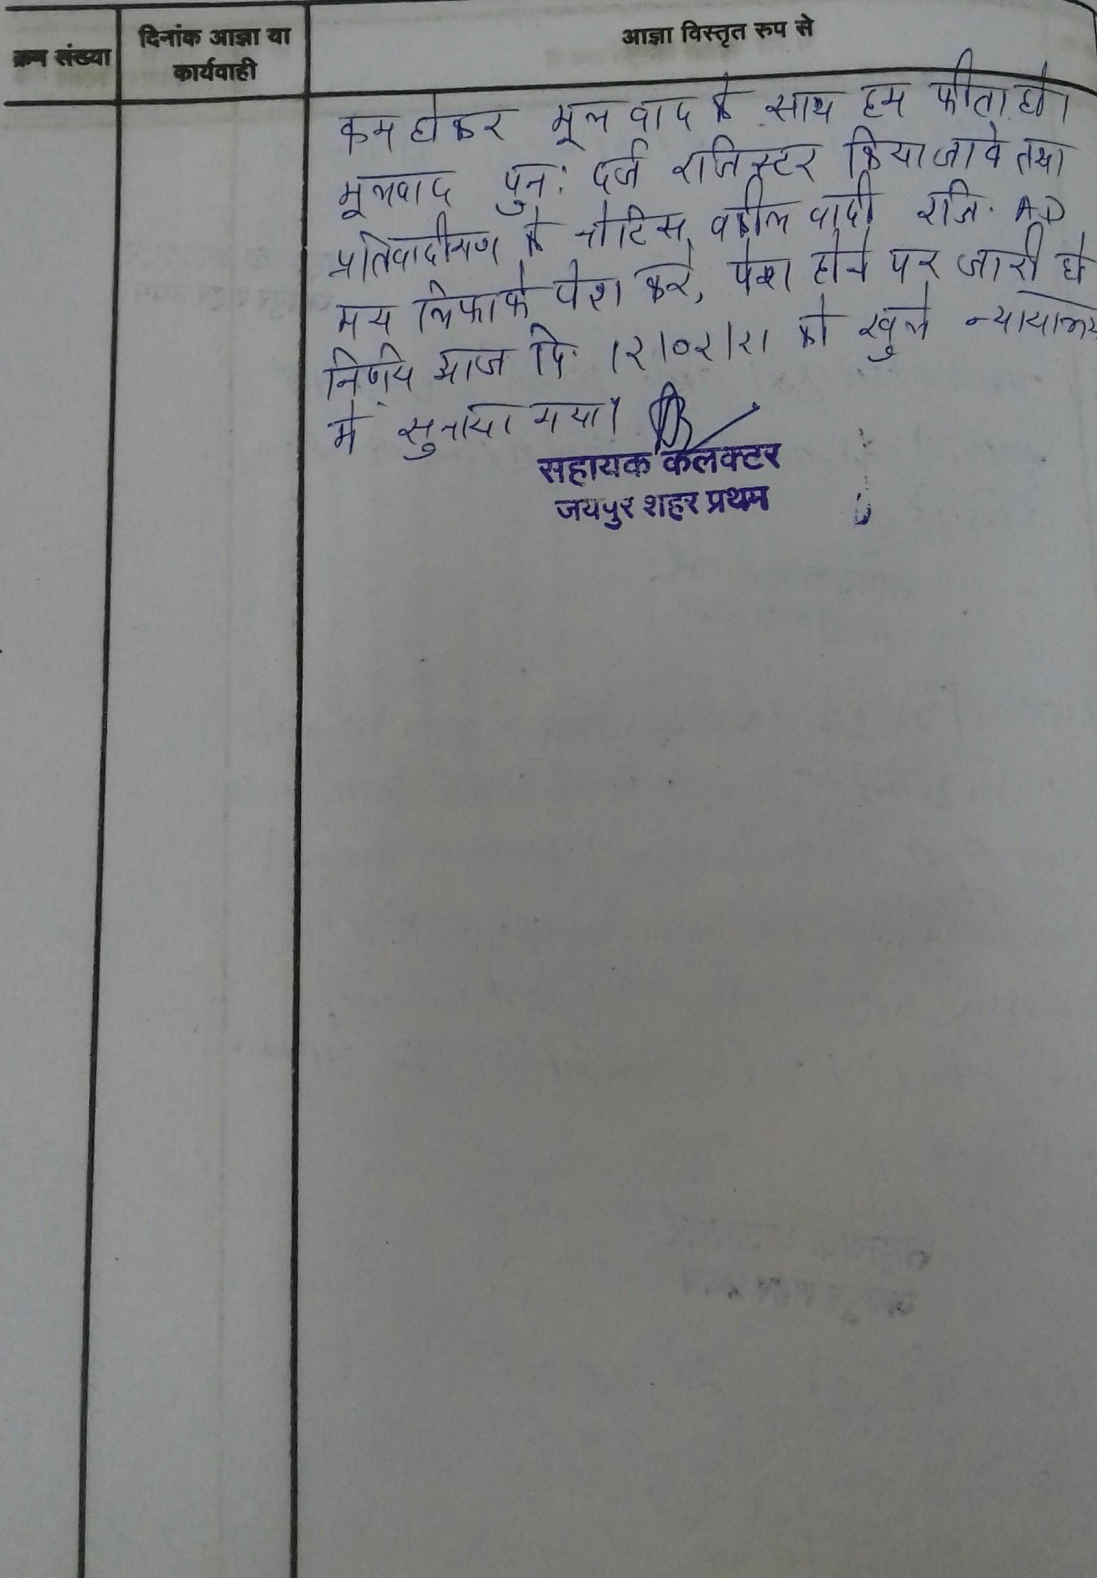 क्रम संख्या
दिनांक आज्ञा या
कार्यवाही
आज्ञा विस्तृत रुप से
कम होकर मूल वाद के साथ हम फीता हो।
मूलवाद पुनः दर्ज रजिस्टर किया जावे तथा
प्रतिवादीगण के नोटिस, वकील वादी रजि. AD
मय लिफाफे पेश करे, पेश होने पर जारी हो
निर्णय आज दि. 12/02/21 को खुले न्यायालय
में सुनाया गया।
सहायक कलक्टर
जयपुर शहर प्रथम